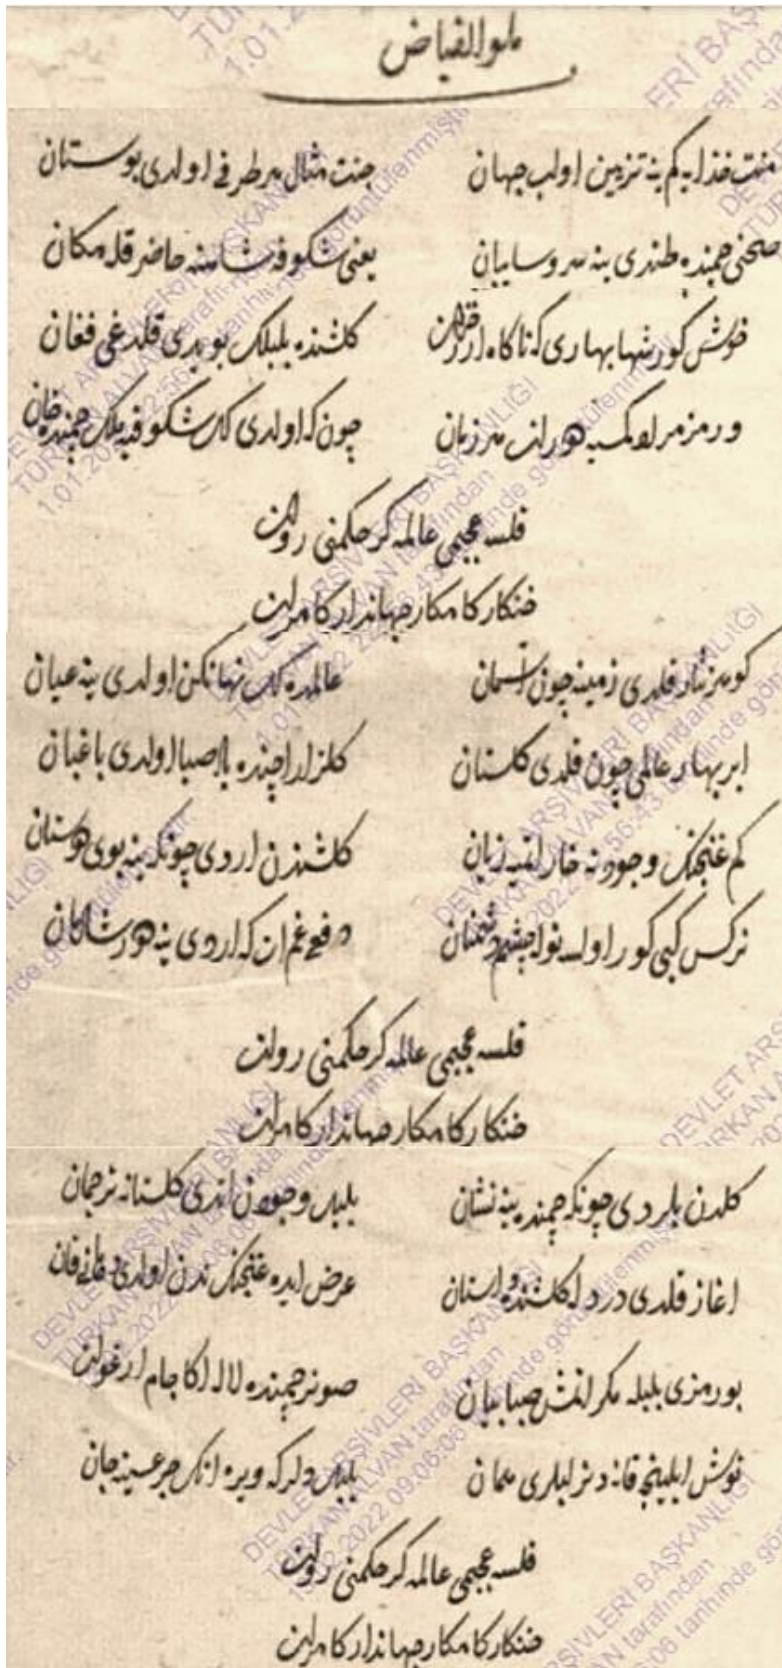 هو الفیاض
منت خدایه کم ینه تزیین اولب جهان جنت مثال هر طرفی اولدی بوستان
صحنی چمنده ینه سر و سایبان یعنی شکوفه حاضر قله مکان
خوش کور شها بهاری که ناکاه ارر خزان کلشنده بلبلک بویدی قلدغی فغان
هر زبان چون که اولدی شکوفه چمنده
قلسه عجبمی عالمه کر حکمنی روان
خنکار کامکار جهاندار کامران
کوهر نثار قلدی زمینه چون اسمان عالمده نهانکن اولدی ینه عیان
ابر بهار عالمی چون قلدی کلستان کلزار ایچنده باد صبا اولدی باغبان
کم غنچنک وجودنه خار ایتمیه زیان کلشندن اردی چونکه ینه بوی دوستان
نرکس کبی کور اوله چشم دشمنان دفع غم ان که اردی ینه
قلسه عجبمی عالمه کر حکمنی روان
خنکار کامکار جهاندار کامران
کلدن بلردی چونکه چمنده ینه نشان بلبل وجودن اندی کلستانه ترجمان
اغاز قلدی درد کلشنده داستان عرض ایده غنچنک ندن اولدی قان
بو رمزی بلبله مکر انمش صبا بیان صونر چمنده لاله اکا جام ارغوان
نوش ایلینجه قانه دنر لبلری همان بلبل دلر که ویره انک جرعسینه جان
قلسه عجبمی عالمه کر حکمنی روان
خنکار کامکار جهاندار کامران
DEVLET ARŞİVLERİ BAŞKANLIĞI
TÜRKAN ALVAN tarafından